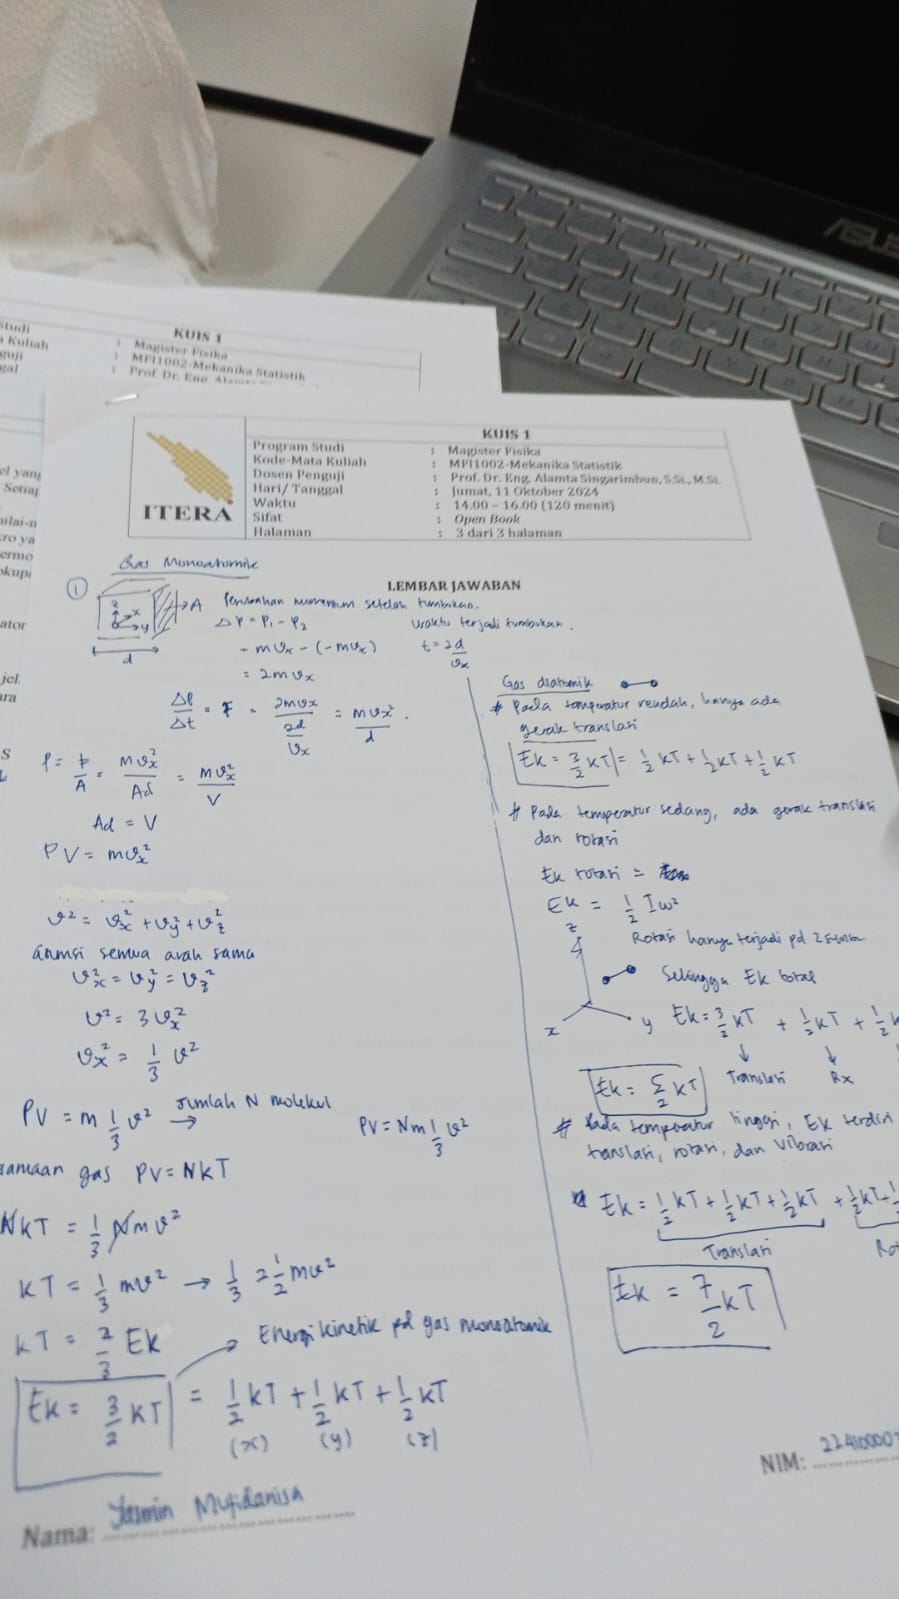 ASUS
KUIS 1
Magister Fisika
MFI1002-Mekanika Statistik
Prof. Dr. Eng.
KUIS 1
ITERA
Program Studi : Magister Fisika
Kode-Mata Kuliah : MFI1002-Mekanika Statistik
Dosen Penguji : Prof. Dr. Eng. Alamta Singarimbun, S.Si., M.Si.
Hari/ Tanggal : Jumat, 11 Oktober 2024
Waktu : 14.00 – 16.00 (120 menit)
Sifat : Open Book
Halaman : 3 dari 3 halaman
Gas Monoatomik
LEMBAR JAWABAN
①
z x y
A
d
Perubahan momentum setelah tumbukan.
Δp = p₁ - p₂
- mvx - (-mvx)
= 2mvx
Waktu terjadi tumbukan.
t = 2d/vx
Δp/Δt = F = 2mvx / (2d/vx) = mvx²/d .
P = F/A = mvx²/Ad = mvx²/V
Ad = V
PV = mvx²
v² = vx² + vy² + vz²
asumsi semua arah sama
vx² = vy² = vz²
v² = 3vx²
vx² = 1/3 v²
PV = m 1/3 v² → Jumlah N molekul PV = Nm 1/3 v²
samaan gas PV = NkT
NkT = 1/3 Nmv²
kT = 1/3 mv² → 1/3 2 1/2 mv²
kT = 2/3 Ek
→ Energi kinetik pd gas monoatomik
Ek = 3/2 kT = 1/2 kT + 1/2 kT + 1/2 kT
(x) (y) (z)
Gas diatomik
# Pada temperatur rendah, hanya ada
gerak translasi
Ek = 3/2 kT = 1/2 kT + 1/2 kT + 1/2 kT
# Pada temperatur sedang, ada gerak translasi
dan rotasi
Ek rotasi =
Ek = 1/2 Iω²
z
Rotasi hanya terjadi pd 2 sumbu
Sehingga Ek total
x y
Ek = 3/2 kT + 1/2 kT + 1/2 k
↓ ↓
Translasi Rx
Ek = 5/2 kT
# Pada temperatur tinggi, Ek terdiri
translasi, rotasi, dan vibrasi
Ek = 1/2 kT + 1/2 kT + 1/2 kT + 1/2 kT + 1/2
Translasi Rot
Ek = 7/2 kT
NIM:
Nama: Yasmin Mufidanisa